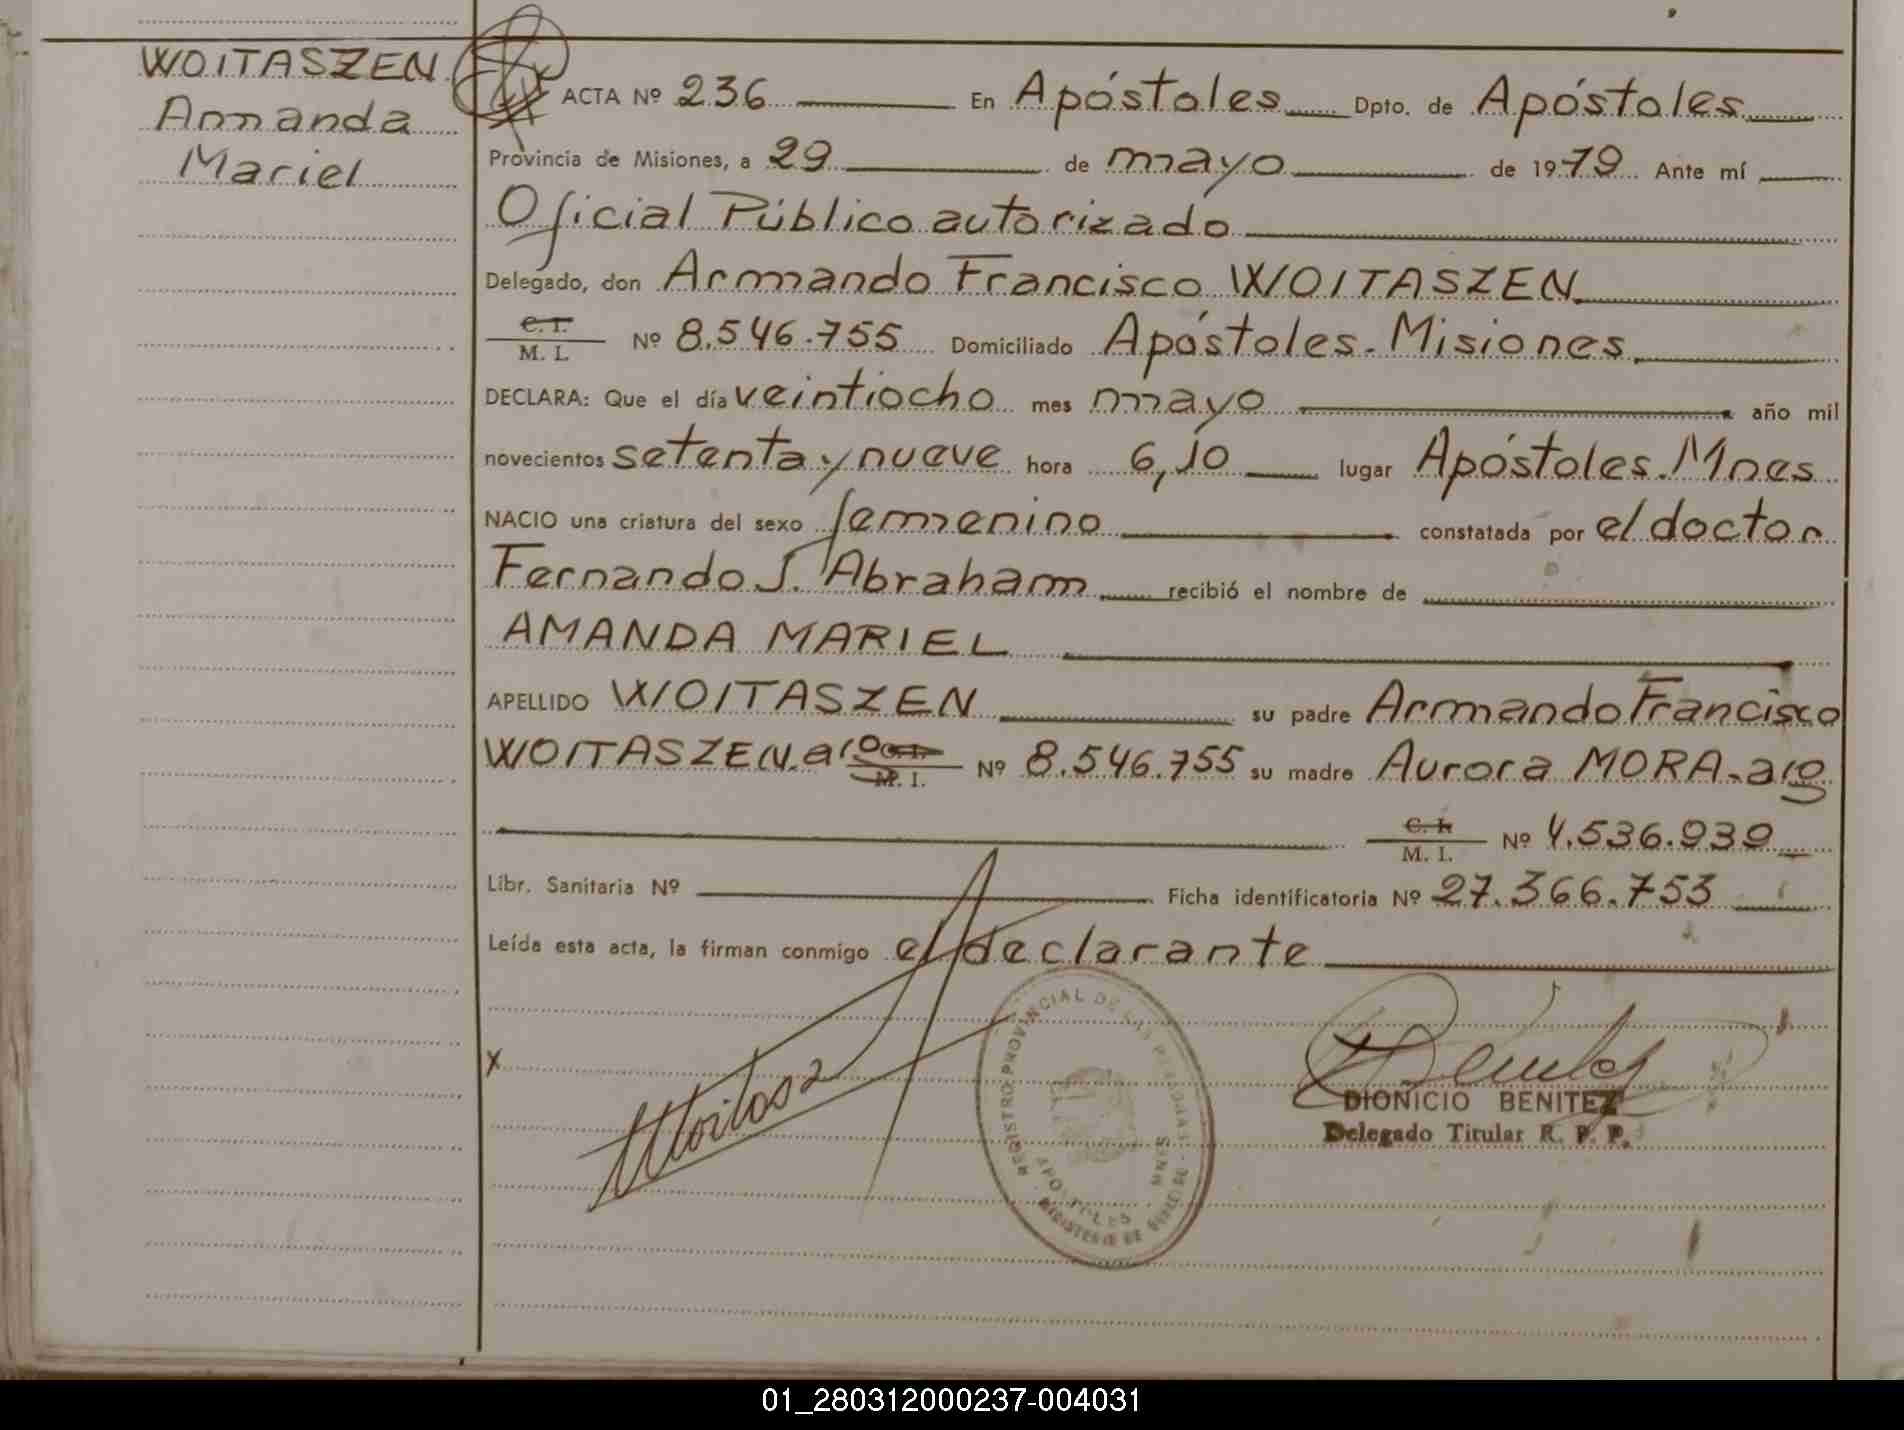 WOITASZEN
Amanda
Mariel
ACTA Nº 236 En Apóstoles Dpto. de Apóstoles
Provincia de Misiones, a 29 de mayo de 1979 Ante mí
Oficial Público autorizado
Delegado, don Armando Francisco WOITASZEN
C. I.
M. I. Nº 8.546.755 Domiciliado Apóstoles. Misiones
DECLARA: Que el día veintiocho mes mayo año mil
novecientos setenta y nueve hora 6,10 lugar Apóstoles. Mnes
NACIO una criatura del sexo femenino constatada por el doctor
Fernando J. Abraham recibió el nombre de
AMANDA MARIEL
APELLIDO WOITASZEN su padre Armando Francisco
WOITASZEN. arg C. I.
M. I. Nº 8.546.755 su madre Aurora MORA. arg
C. I.
M. I. Nº 4.536.939
Libr. Sanitaria Nº Ficha identificatoria Nº 27.366.753
Leída esta acta, la firman conmigo el declarante
x
REGISTRO PROVINCIAL DE LAS PERSONAS
APOSTOLES MNES
MINISTERIO DE GOBIERNO
DIONICIO BENITEZ
Delegado Titular R. P. P.
01_280312000237-004031